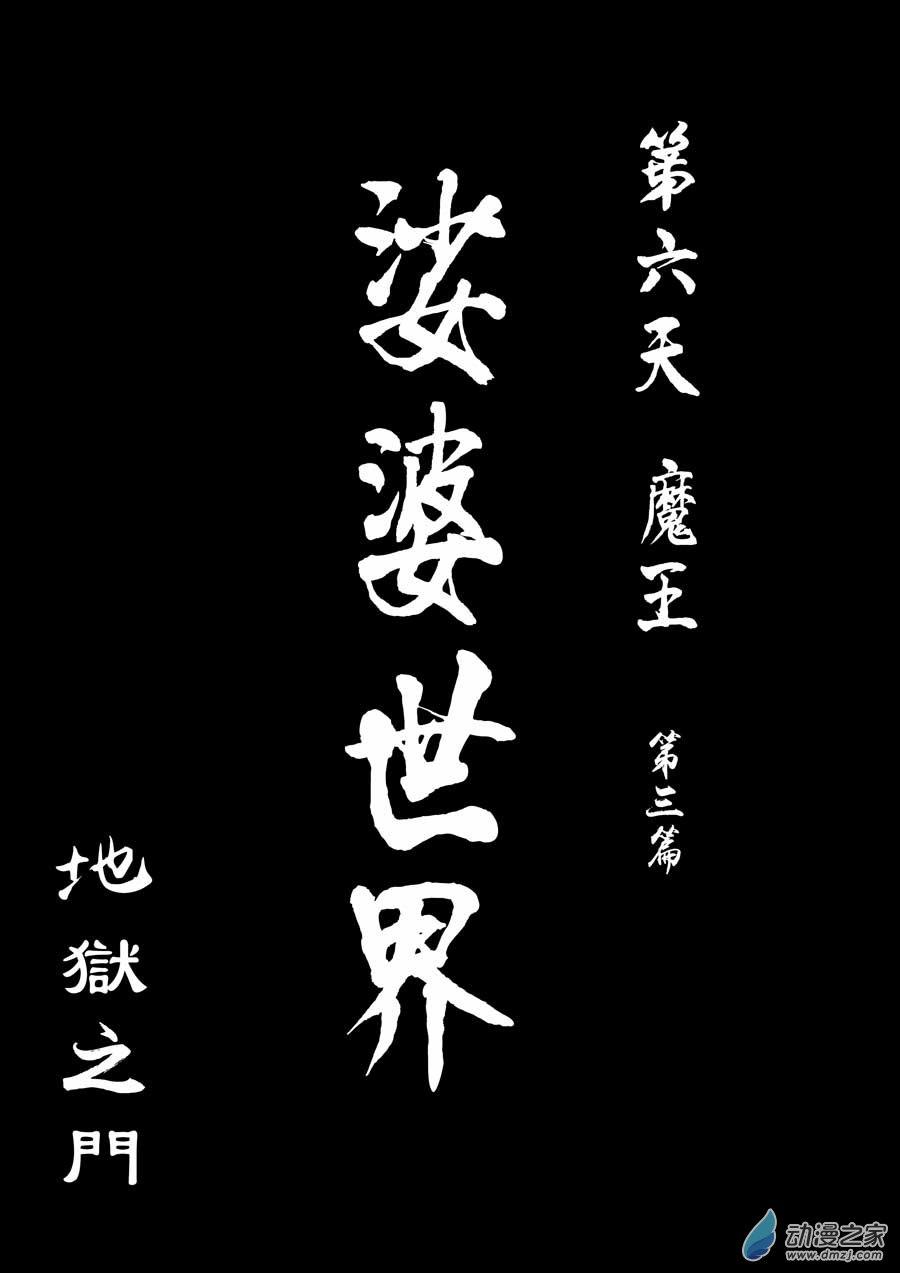 第六天 魔王 第三篇
娑婆世界
地獄之門
动漫之家
www.dmzj.com